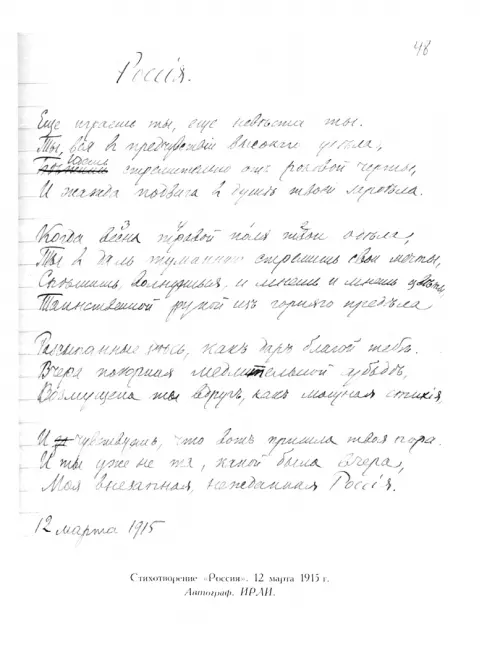 48
Россія.
Еще играешь ты, еще невѣста ты.
Ты, вся въ предчувствіи высокаго удѣла,
Идешь стремительно отъ роковой черты,
И жажда подвига въ душѣ твоей зардѣла.
Когда весна травой поля твои одѣла,
Ты въ даль туманную стремишь свои мечты,
Спѣшишь, волнуешься, и мнешь, и мнешь цвѣты,
Таинственной рукой изъ горняго предѣла
Разсыпанные здѣсь, какъ даръ благой тебѣ.
Вчера покорная медлительной судьбѣ,
Возмущена ты вдругъ, какъ мощная стихія,
И чувствуешь, что вотъ пришла твоя пора.
И ты уже не та, какой была вчера,
Моя внезапная, нежданная Россія.
12 марта 1915
Стихотворение «Россия». 12 марта 1915 г.
Автограф. ИРЛИ.